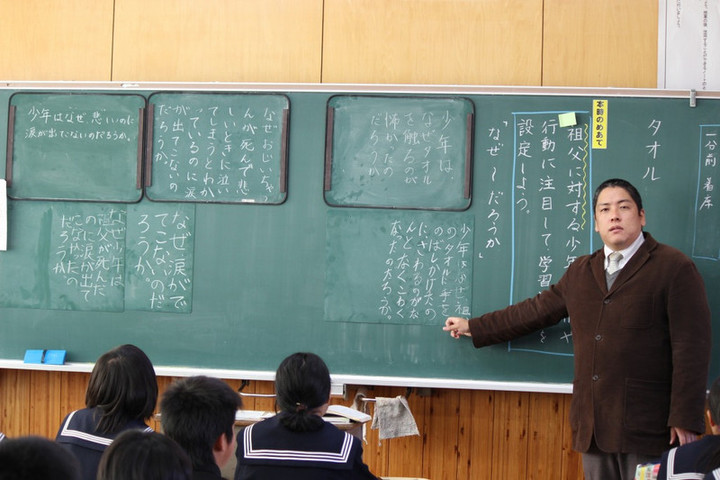 一谷前 着席
タオル
本時のめあて
祖父に対する少年
行動に注目して学習
設定しよう。
「なぜ～だろうか」
少年は、
なぜタオル
を触るのが
怖かたの
だろうか
少年はなぜ祖
のタオルに手を
のばしかけたの
にさわるのがな
んとなくこわく
なったのだろうか。
なぜおじいちゃ
んが死んで悲
しいときに泣い
てしまうとわか
っているのに涙
が出てこないの
だろうか
少年はなぜ、悲しいのに
涙が出てこないのだろうか。
なぜ涙がで
てこないのだ
ろうか。
なぜ少年は
祖父が死んだ
のに涙が出て
こなかったの
だろうか